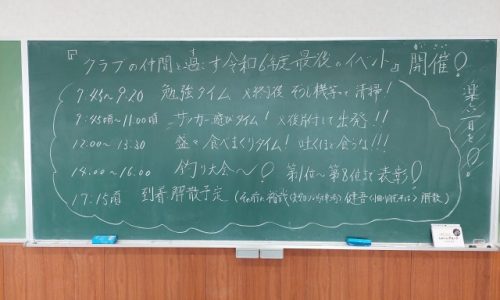 『クラブの仲間と過ごす令和6年度最後のイベント』開催!
かいさい
楽しい一日を!
7:45~9:20 勉強タイム ×終了後 そうじ機等で清掃!
9:45頃~11:00頃 サッカー遊びタイム! ×後片付して出発!!
12:00~13:30 盛々食べまくりタイム! 吐くほど食うな!!!
14:00~16:00 釣り大会~! 第1位~第8位まで表彰!
17:15頃 到着 解散予定